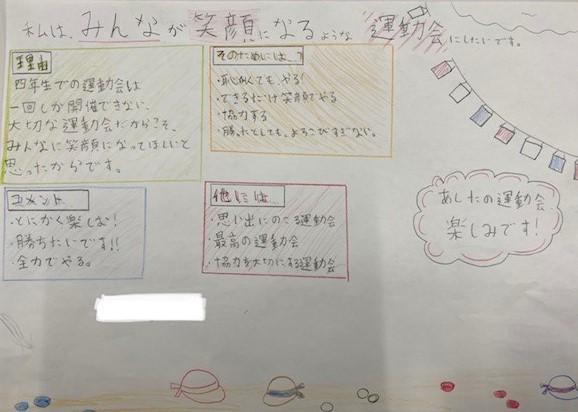 私は、みんなが笑顔になるような運動会にしたいです。
理由
四年生での運動会は
一回しか開催できない、
大切な運動会だからこそ、
みんなに笑顔になってほしいと
思ったからです。
そのためには…?
・恥ずかしくても、やる!
・できるだけ笑顔でやる
・協力する
・勝ったとしても、よろこびすぎない。
コメント…
・とにかく楽しむ!
・勝ちたいです!!
・全力でやる。
他には…
・思い出にのこる運動会
・最高の運動会
・協力を大切にする運動会
あしたの運動会
楽しみです!